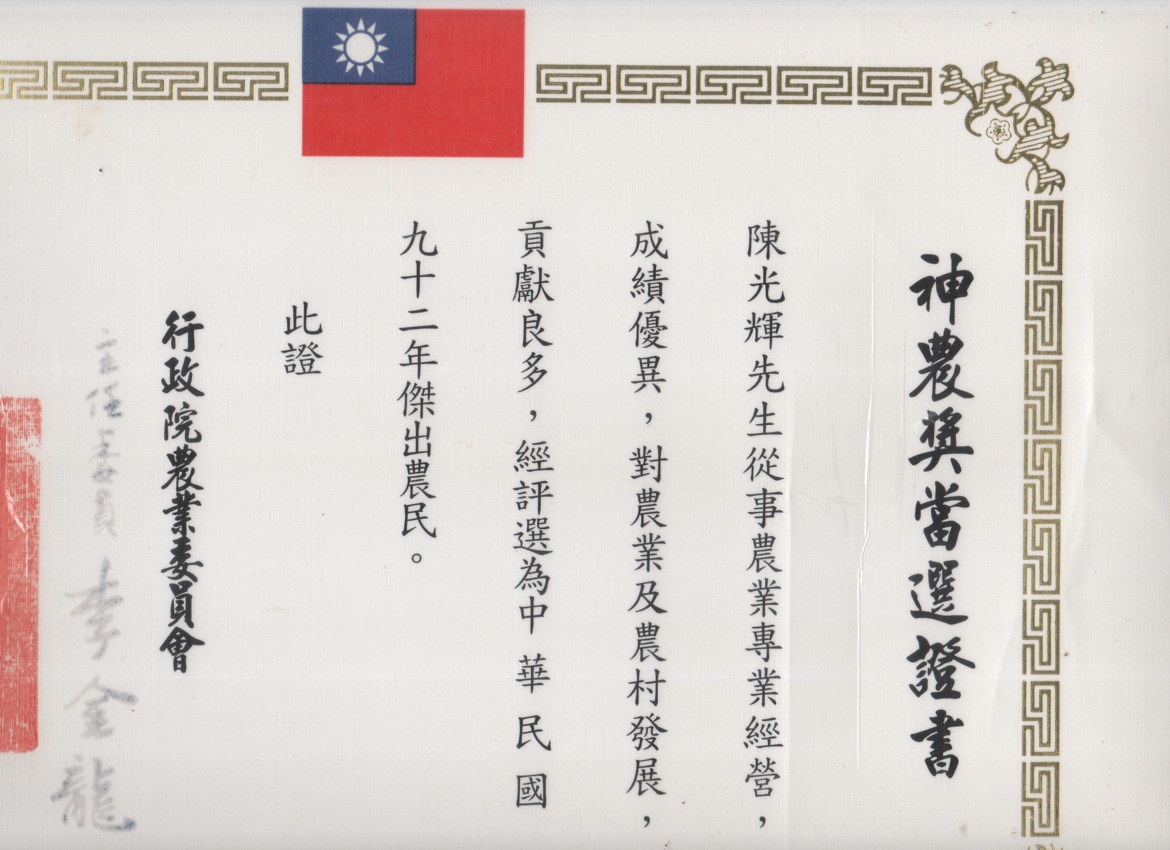 神農獎當選證書
陳光輝先生從事農業專業經營，
成績優異，對農業及農村發展，
貢獻良多，經評選為中華民國
九十二年傑出農民。
此證
行政院農業委員會
主任委員 李金龍